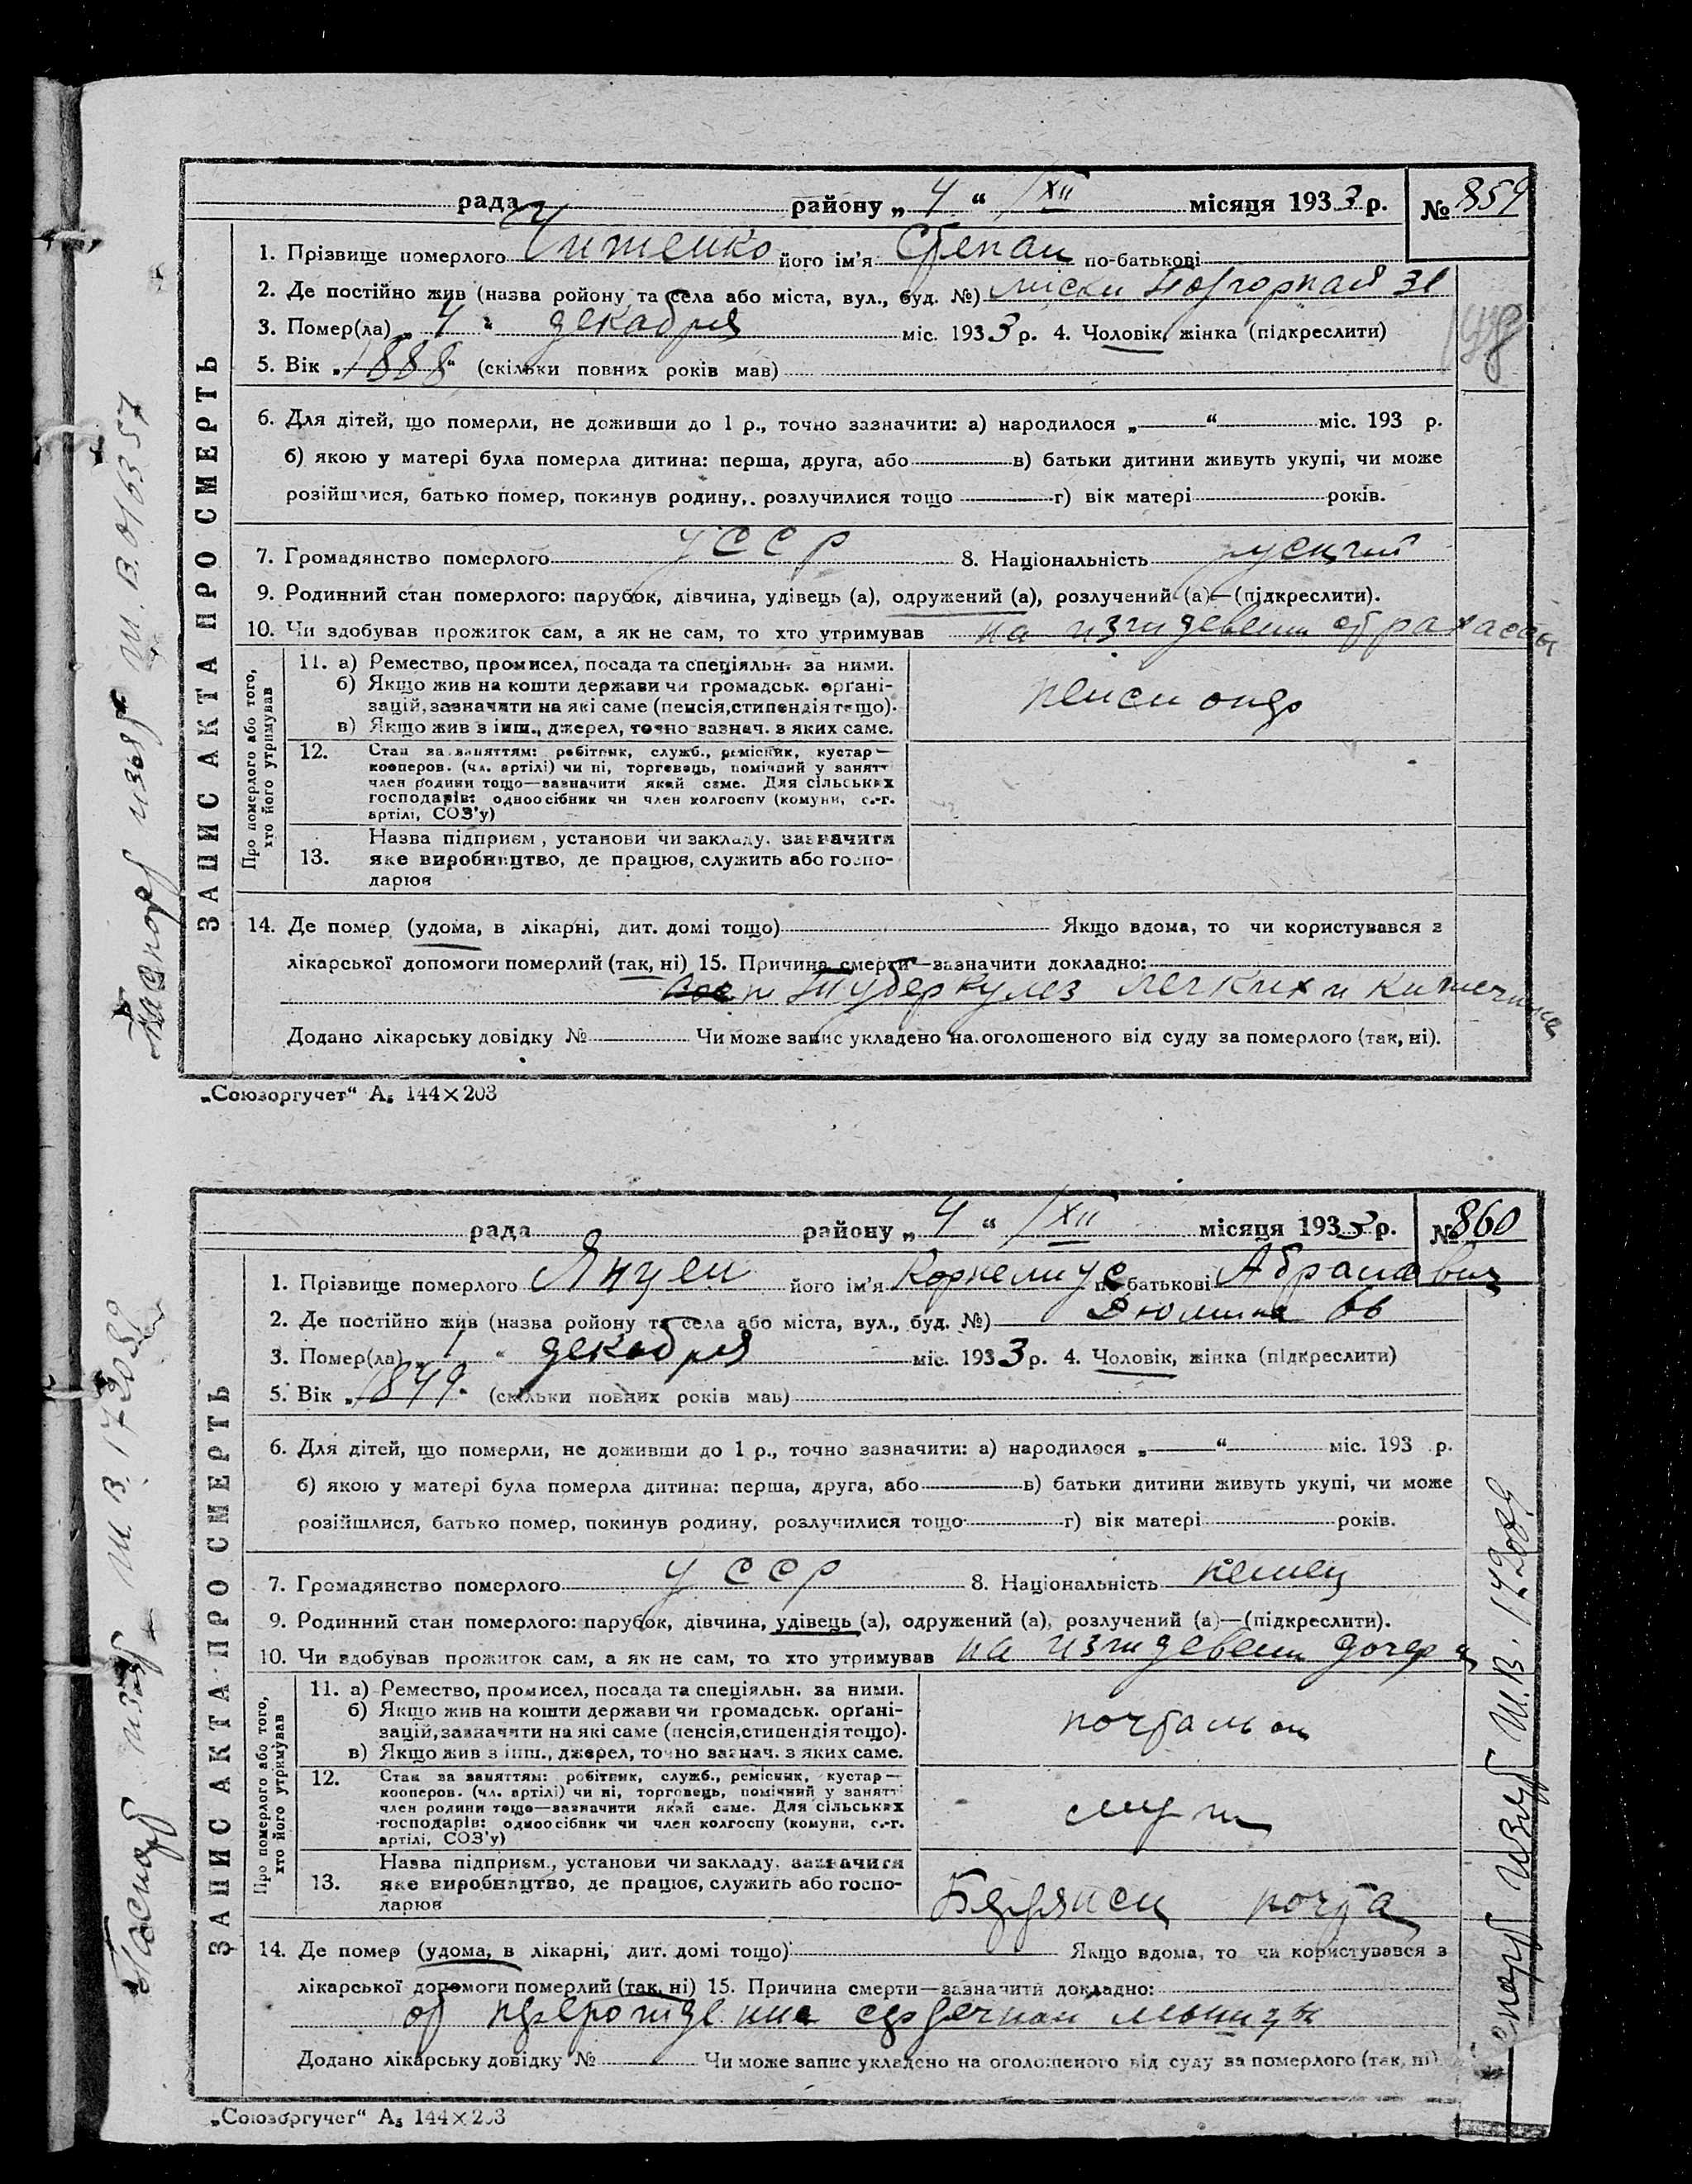 рада району „ 4 “ XII місяця 1933 р. № 859
1. Прізвище померлого його ім'я Степан по-батькові
2. Де постійно жив (назва ройону та села або міста, вул., буд. №) лиски Нагорная 31
3. Помер(ла) „ 4 “ декабря міс. 1933 р. 4. Чоловік, жінка (підкреслити)
5. Вік „1888“ (скільки повних років мав)
6. Для дітей, що померли, не доживши до 1 р., точно зазначити: а) народилося „ “ міс. 193 р.
б) якою у матері була померла дитина: перша, друга, або в) батьки дитини живуть укупі, чи може
розійшлися, батько помер, покинув родину, розлучилися тощо г) вік матері років.
7. Громадянство померлого УССР 8. Національність русский
9. Родинний стан померлого: парубок, дівчина, удівець (а), одружений (а), розлучений (а)—(підкреслити).
10. Чи здобував прожиток сам, а як не сам, то хто утримував на иждевени
11. а) Ремество, промисел, посада та спеціяльн. за ними.
б) Якщо жив на кошти держави чи громадськ. орґані-
зацій, зазначити на які саме (пенсія, стипендія тощо).
в) Якщо жив з інш., джерел, точно зазнач. з яких саме.
пенсионер
12. Стан за заняттям: робітник, служб., ремісник, кустар—
кооперов. (чл. артілі) чи ні, торговець, помічний у занятт
член родини тощо—зазначити який саме. Для сільських
господарів: одноосібник чи член колгоспу (комуни, с.-г.
артілі, СОЗ'у)
13. Назва підприєм., установи чи закладу, зазначити
яке виробництво, де працює, служить або госпо-
дарює
14. Де помер (удома, в лікарні, дит. домі тощо) Якщо вдома, то чи користувався з
лікарської допомоги померлий (так, ні) 15. Причина смерти—зазначити докладно:
туберкулез легких и кишечника
Додано лікарську довідку № Чи може запис укладено на оголошеного від суду за померлого (так, ні).
ЗАПИС АКТА ПРО СМЕРТЬ
Про померлого або того,
хто його утримував
Паспорт изъят Ш.В. 016357
„Союзоргучет“ А₅ 144×203
рада району „ 4 “ XII місяця 1933 р. № 860
1. Прізвище померлого Янцен його ім'я Корнелиус по-батькові Абрамович
2. Де постійно жив (назва ройону та села або міста, вул., буд. №) Дюмина 66
3. Помер(ла) „ 1 “ декабря міс. 1933 р. 4. Чоловік, жінка (підкреслити)
5. Вік „1849“ (скільки повних років мав)
6. Для дітей, що померли, не доживши до 1 р., точно зазначити: а) народилося „ “ міс. 193 р.
б) якою у матері була померла дитина: перша, друга, або в) батьки дитини живуть укупі, чи може
розійшлися, батько помер, покинув родину, розлучилися тощо г) вік матері років.
7. Громадянство померлого УССР 8. Національність немец
9. Родинний стан померлого: парубок, дівчина, удівець (а), одружений (а), розлучений (а)—(підкреслити).
10. Чи здобував прожиток сам, а як не сам, то хто утримував на иждевени дочери
11. а) Ремество, промисел, посада та спеціяльн. за ними.
б) Якщо жив на кошти держави чи громадськ. орґані-
зацій, зазначити на які саме (пенсія, стипендія тощо).
в) Якщо жив з інш., джерел, точно зазнач. з яких саме.
почтальон
12. Стан за заняттям: робітник, служб., ремісник, кустар—
кооперов. (чл. артілі) чи ні, торговець, помічний у занятті
член родини тощо—зазначити який саме. Для сільських
господарів: одноосібник чи член колгоспу (комуни, с.-г.
артілі, СОЗ'у)
служ
13. Назва підприєм., установи чи закладу, зазначити
яке виробництво, де працює, служить або госпо-
дарює
Бердянск почта
14. Де помер (удома, в лікарні, дит. домі тощо) Якщо вдома, то чи користувався з
лікарської допомоги померлий (так, ні) 15. Причина смерти—зазначити докладно:
от перерождения сердечной мышцы
Додано лікарську довідку № Чи може запис укладено на оголошеного від суду за померлого (так, ні)
ЗАПИС АКТА ПРО СМЕРТЬ
Про померлого або того,
хто його утримував
Паспорт изъят Ш.В. 172089
Паспорт изъят Ш.В. 172089
„Союзоргучет“ А₅ 144×203